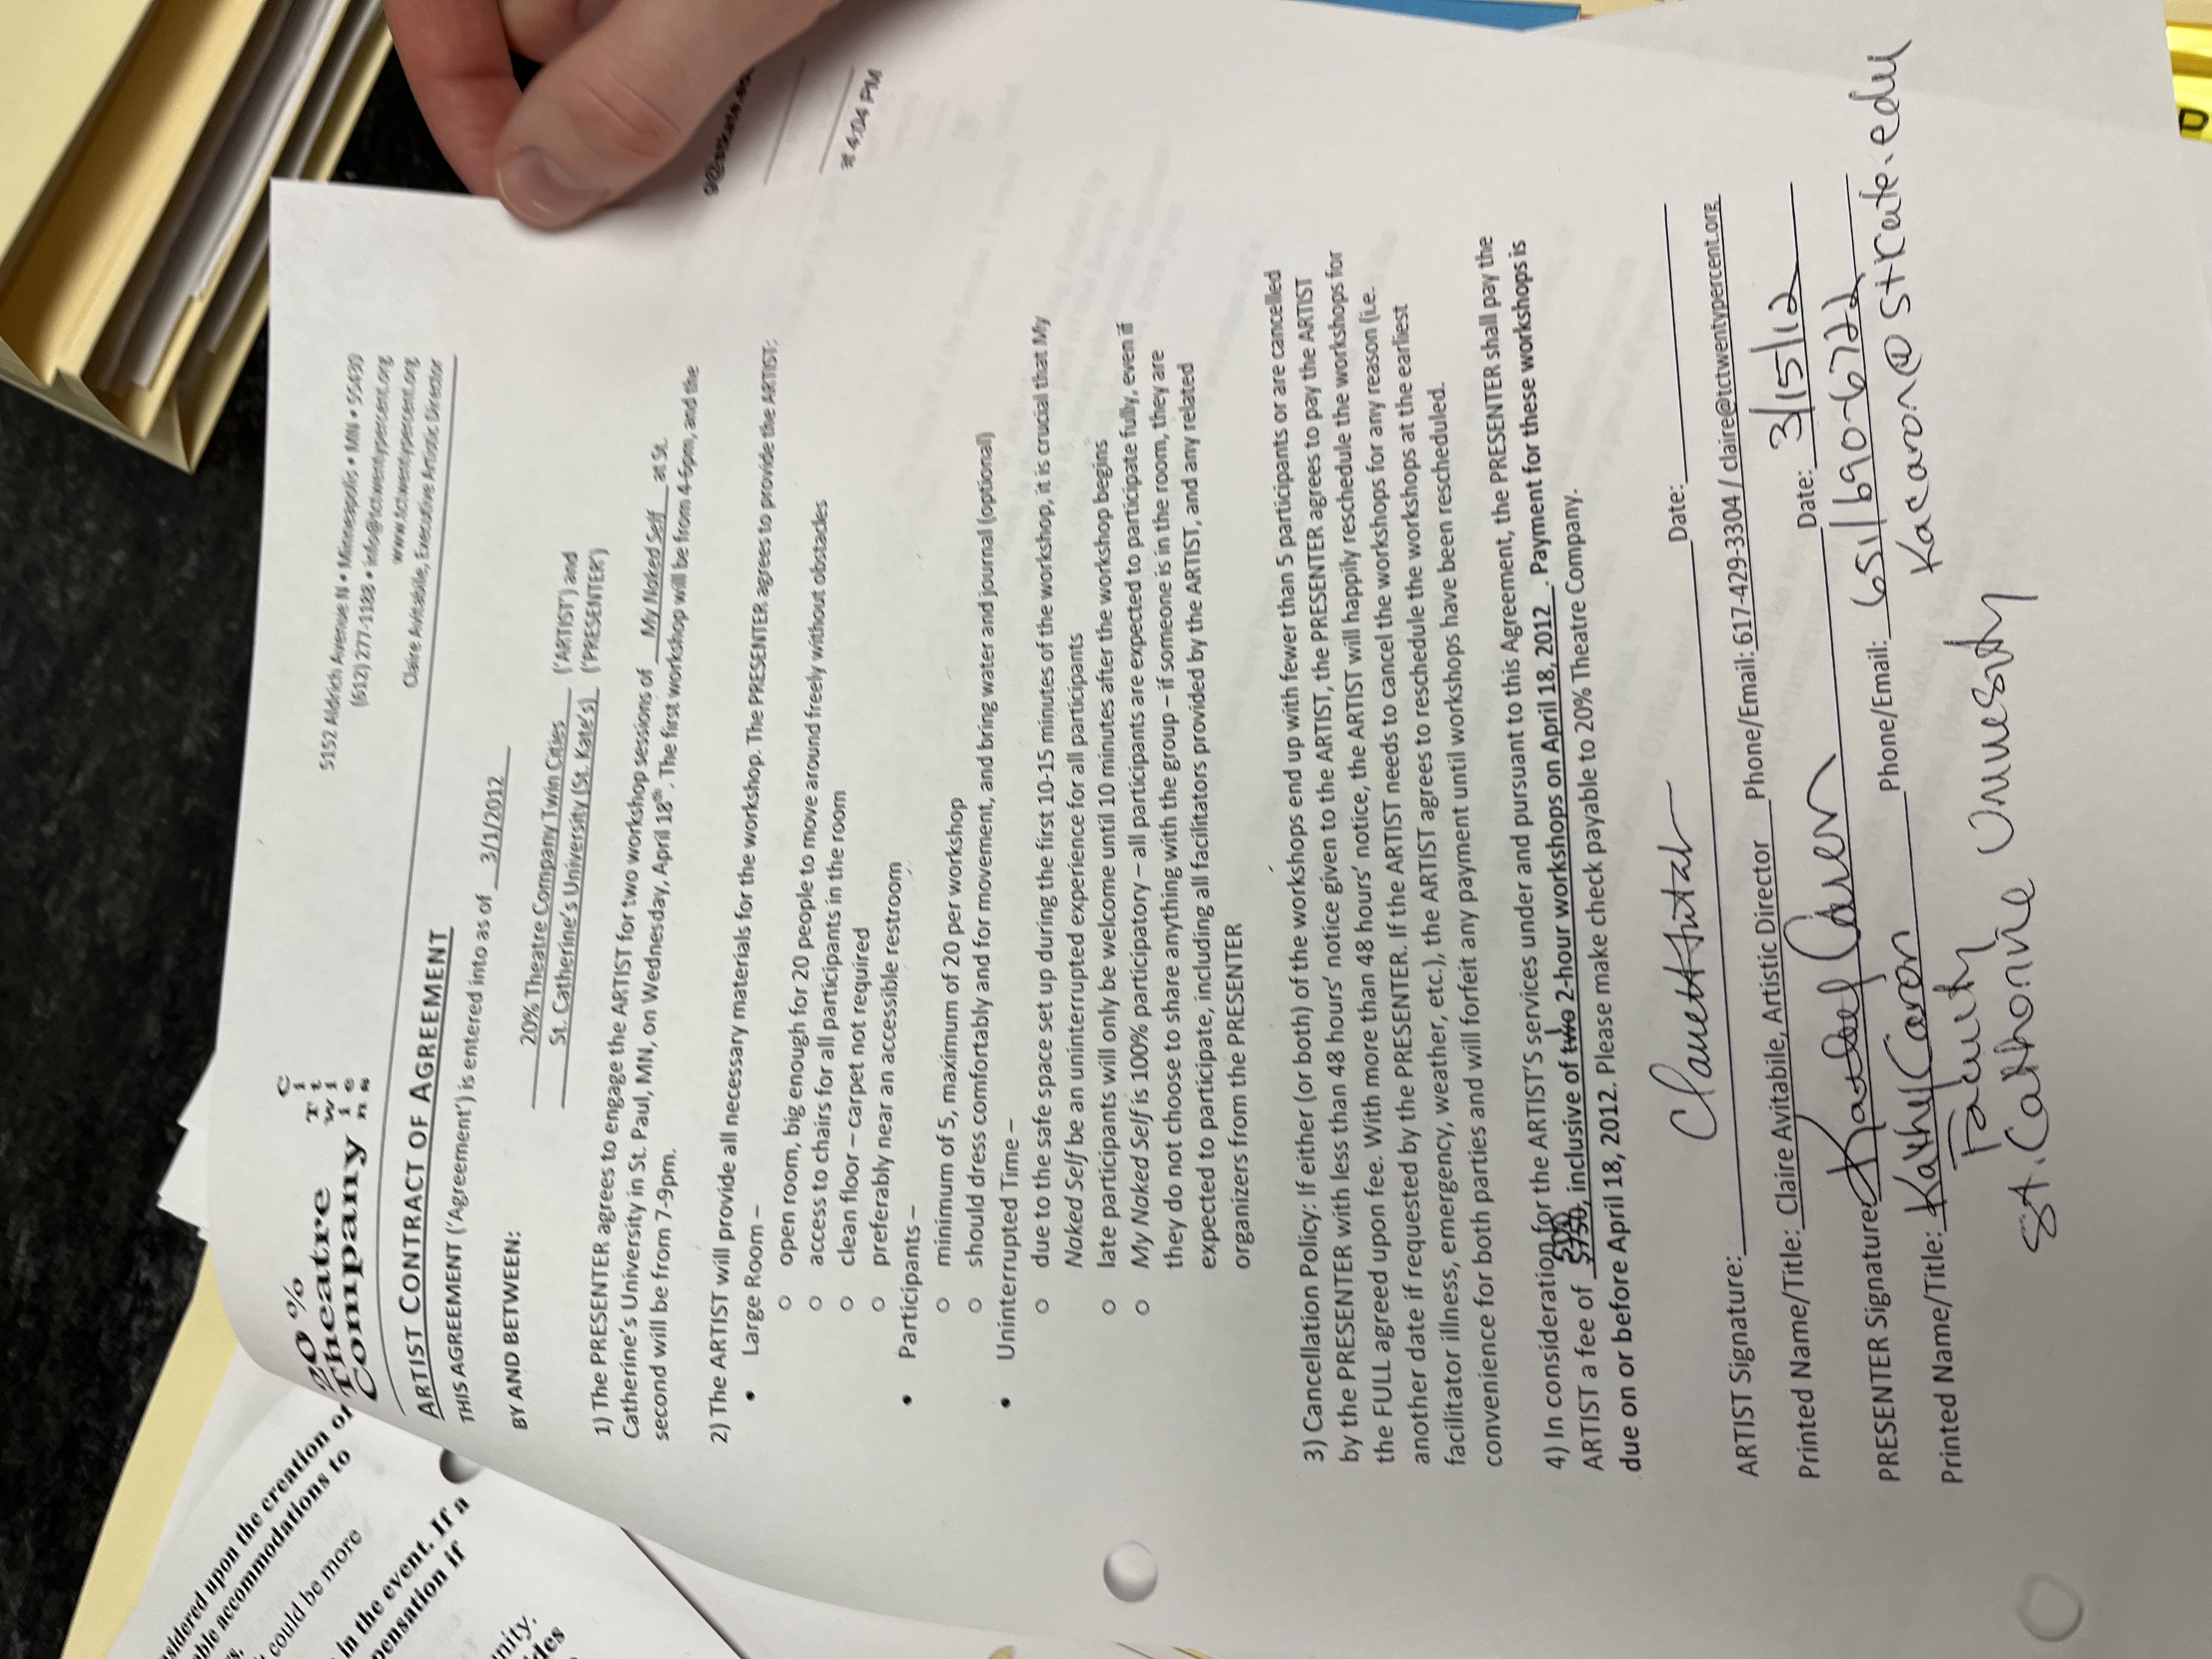 sidered upon the creation of
ble accommodations to
s.
could be more
in the event. If a
pensation if
nity.
des
20 %
Theatre
Company
Twin
Cities
5152 Aldrich Avenue N • Minneapolis • MN • 55430
(612) 277-1188 • info@tctwentypercent.org
www.tctwentypercent.org
Claire Avitabile, Executive Artistic Director
ARTIST CONTRACT OF AGREEMENT
THIS AGREEMENT ('Agreement') is entered into as of 3/1/2012
BY AND BETWEEN:
20% Theatre Company Twin Cities ('ARTIST') and
St. Catherine's University (St. Kate's) ('PRESENTER')
1) The PRESENTER agrees to engage the ARTIST for two workshop sessions of My Naked Self at St.
Catherine's University in St. Paul, MN, on Wednesday, April 18th. The first workshop will be from 4-6pm, and the
second will be from 7-9pm.
2) The ARTIST will provide all necessary materials for the workshop. The PRESENTER agrees to provide the ARTIST:
• Large Room –
o open room, big enough for 20 people to move around freely without obstacles
o access to chairs for all participants in the room
o clean floor – carpet not required
o preferably near an accessible restroom
• Participants –
o minimum of 5, maximum of 20 per workshop
o should dress comfortably and for movement, and bring water and journal (optional)
• Uninterrupted Time –
o due to the safe space set up during the first 10-15 minutes of the workshop, it is crucial that My
Naked Self be an uninterrupted experience for all participants
o late participants will only be welcome until 10 minutes after the workshop begins
o My Naked Self is 100% participatory – all participants are expected to participate fully, even if
they do not choose to share anything with the group – if someone is in the room, they are
expected to participate, including all facilitators provided by the ARTIST, and any related
organizers from the PRESENTER
3) Cancellation Policy: If either (or both) of the workshops end up with fewer than 5 participants or are cancelled
by the PRESENTER with less than 48 hours' notice given to the ARTIST, the PRESENTER agrees to pay the ARTIST
the FULL agreed upon fee. With more than 48 hours' notice, the ARTIST will happily reschedule the workshops for
another date if requested by the PRESENTER. If the ARTIST needs to cancel the workshops for any reason (i.e.
facilitator illness, emergency, weather, etc.), the ARTIST agrees to reschedule the workshops at the earliest
convenience for both parties and will forfeit any payment until workshops have been rescheduled.
4) In consideration for the ARTIST'S services under and pursuant to this Agreement, the PRESENTER shall pay the
500 1
ARTIST a fee of $750, inclusive of two 2-hour workshops on April 18, 2012. Payment for these workshops is
due on or before April 18, 2012. Please make check payable to 20% Theatre Company.
ARTIST Signature: Date:
Printed Name/Title: Claire Avitabile, Artistic Director Phone/Email: 617-429-3304 / claire@tctwentypercent.org
PRESENTER Signature: Caron Date: 3/15/12
Printed Name/Title: Kathy Caron Phone/Email: 651/690-6722
kacaron@stkate.edu
Faculty
St. Catherine University
at 4:04 PM